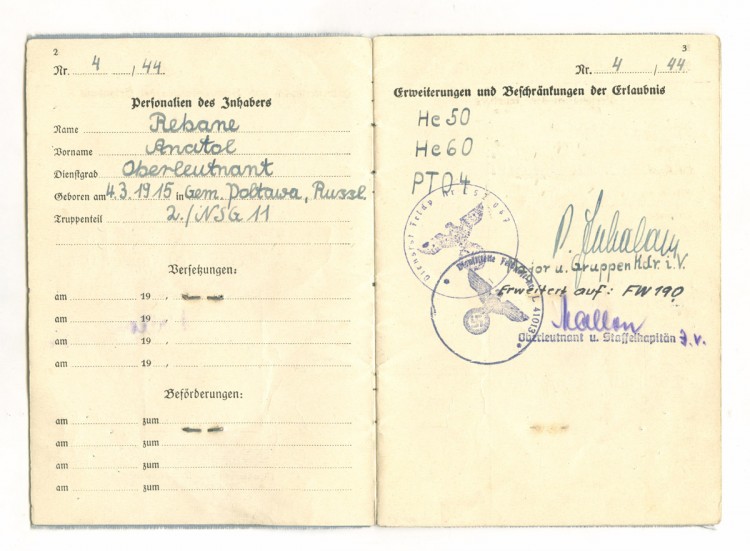 2
Nr. 4 / 44
Personalien des Inhabers
Name Rebane
Vorname Anatol
Dienstgrad Oberleutnant
Geboren am 4.3.1915 in Gem. Poltawa, Russl.
Truppenteil 2./NSG 11
Versetzungen:
am 19 ,
am 19 ,
am 19 ,
am 19 ,
Beförderungen:
am zum
am zum
am zum
am zum
3
Nr. 4 / 44
Erweiterungen und Beschränkungen der Erlaubnis
He 50
He 60
PTO 4
Major u. Gruppen Kdr. i.V.
Erweitert auf: FW 190
Oberleutnant u. Staffelkapitän J.V.